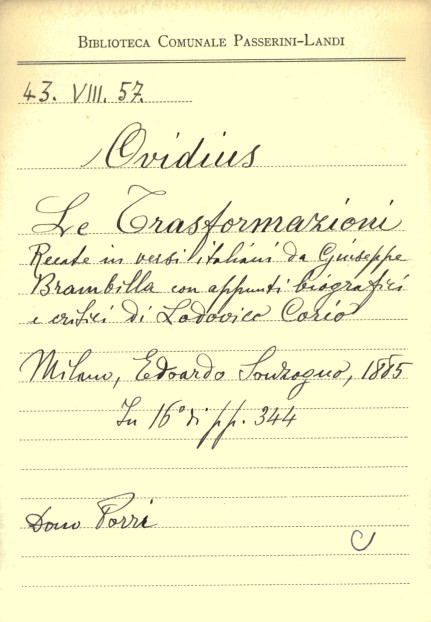 BIBLIOTECA COMUNALE PASSERINI-LANDI
43. VIII. 57.
Ovidius
Le Trasformazioni
Recate in versi italiani da Giuseppe
Brambilla con appunti biografici
e critici di Lodovico Corio
Milano, Edoardo Sonzogno, 1885
In 16° di pp. 344
Dono Porri
C